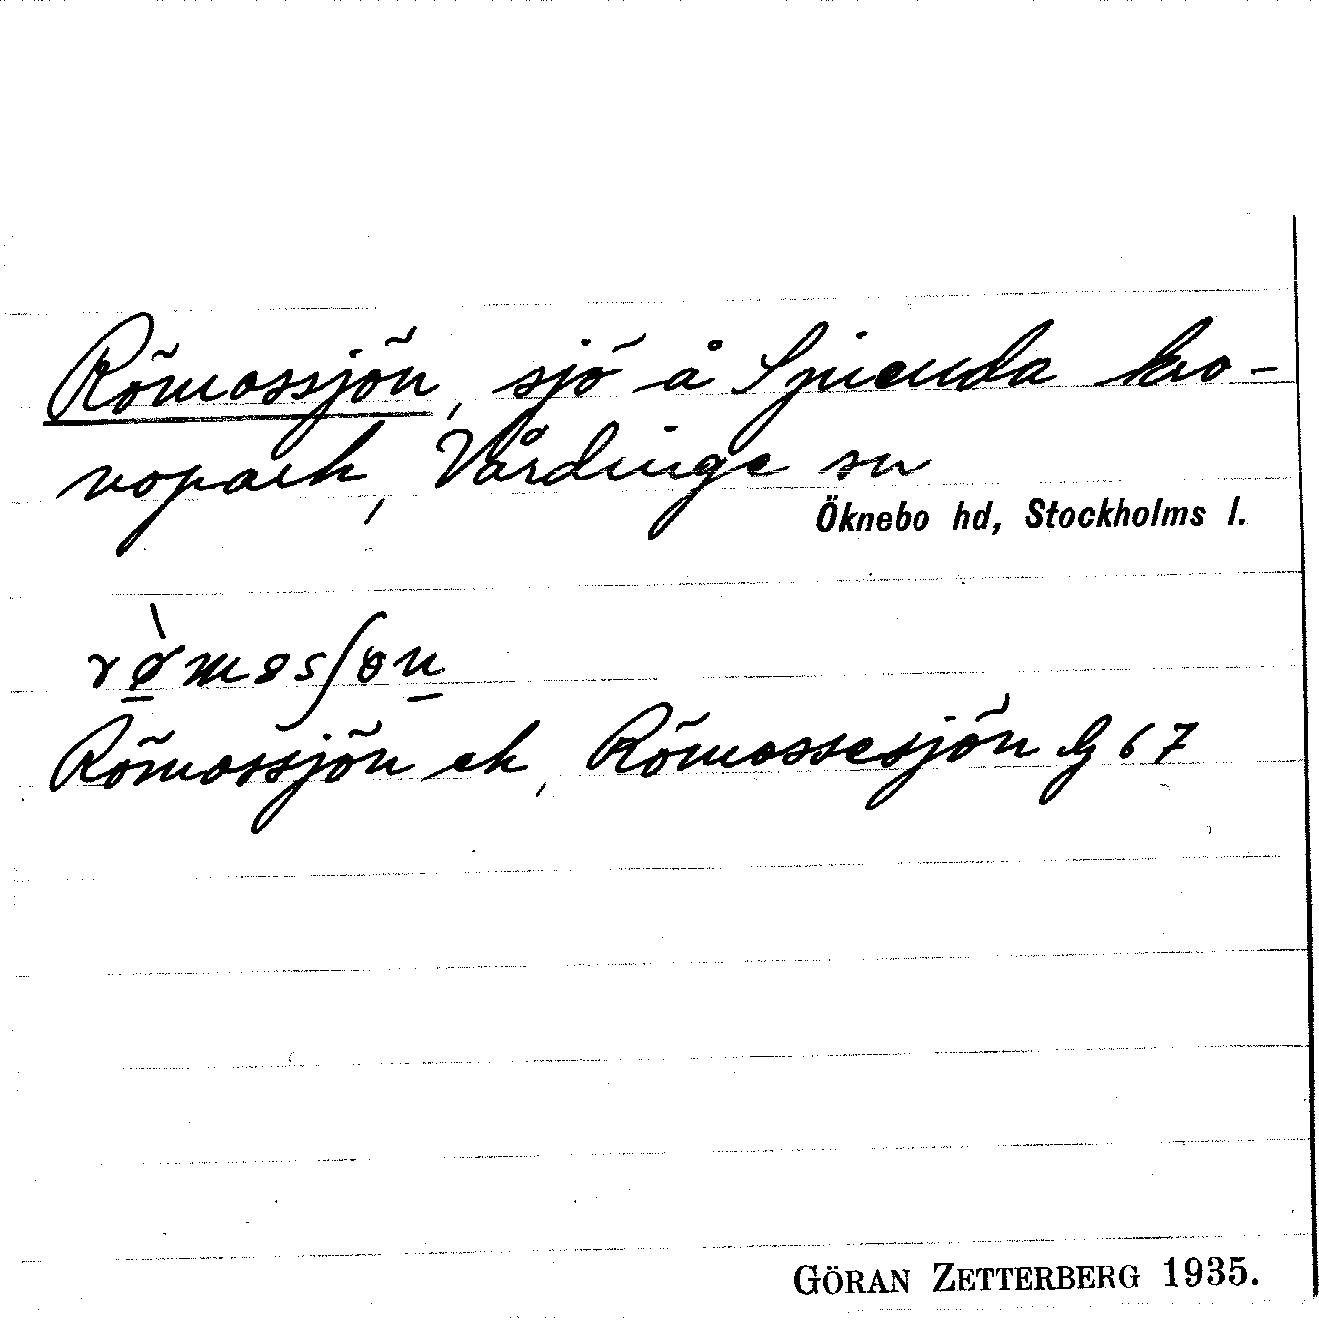 Römossjön, sjö å Spienda kro-
nopark, Vårdinge sn
Öknebo hd, Stockholms l.
rø̀mosʃøn
Römossjön ek, Römossesjön G 67
GÖRAN ZETTERBERG 1935.